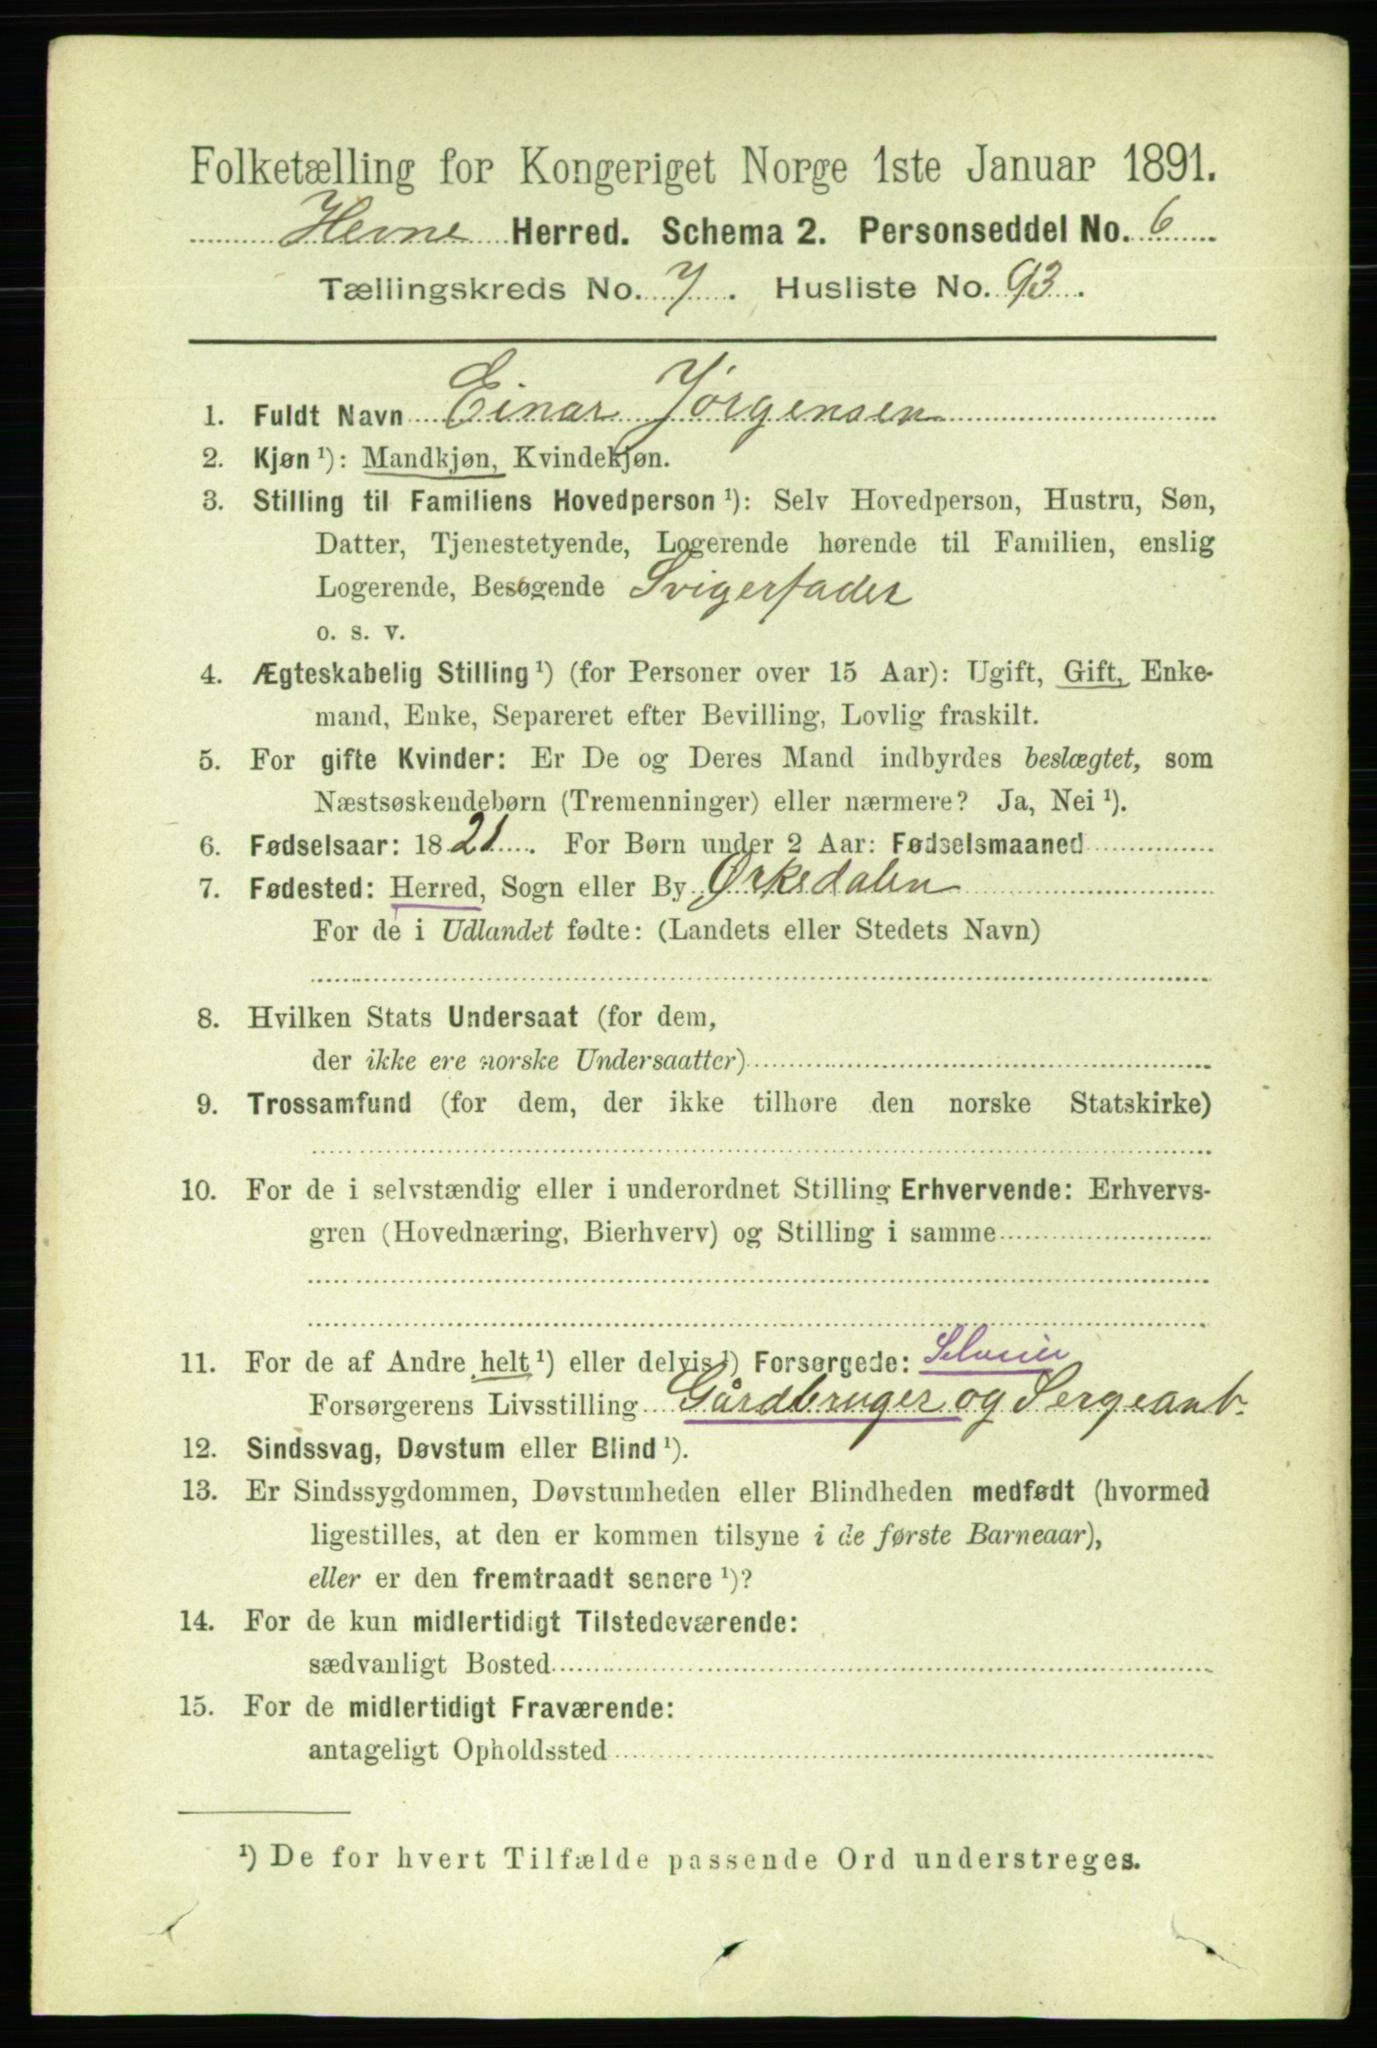 Folketælling for Kongeriget Norge 1ste Januar 1891.
Hevne Herred. Schema 2. Personseddel No. 6
Tællingskreds No. 7. Husliste No. 93.
1. Fuldt Navn Einar Jörgensen
2. Kjøn ¹): Mandkjøn, Kvindekjøn.
3. Stilling til Familiens Hovedperson ¹): Selv Hovedperson, Hustru, Søn,
Datter, Tjenestetyende, Logerende hørende til Familien, enslig
Logerende, Besøgende Svigerfader
o. s. v.
4. Ægteskabelig Stilling ¹) (for Personer over 15 Aar): Ugift, Gift, Enke-
mand, Enke, Separeret efter Bevilling, Lovlig fraskilt.
5. For gifte Kvinder: Er De og Deres Mand indbyrdes beslægtet, som
Næstsøskendebørn (Tremenninger) eller nærmere? Ja, Nei ¹).
6. Fødselsaar: 1821. For Børn under 2 Aar: Fødselsmaaned
7. Fødested: Herred, Sogn eller By Ørksdalen
For de i Udlandet fødte: (Landets eller Stedets Navn)
8. Hvilken Stats Undersaat (for dem,
der ikke ere norske Undersaatter)
9. Trossamfund (for dem, der ikke tilhøre den norske Statskirke)
10. For de i selvstændig eller i underordnet Stilling Erhvervende: Erhvervs-
gren (Hovednæring, Bierhverv) og Stilling i samme
11. For de af Andre helt ¹) eller delvis ¹) Forsørgede: Selveier
Forsørgerens Livsstilling Gårdbruger og Sergeant.
12. Sindssvag, Døvstum eller Blind ¹).
13. Er Sindssygdommen, Døvstumheden eller Blindheden medfødt (hvormed
ligestilles, at den er kommen tilsyne i de første Barneaar),
eller er den fremtraadt senere ¹)?
14. For de kun midlertidigt Tilstedeværende:
sædvanligt Bosted
15. For de midlertidigt Fraværende:
antageligt Opholdssted
¹) De for hvert Tilfælde passende Ord understreges.